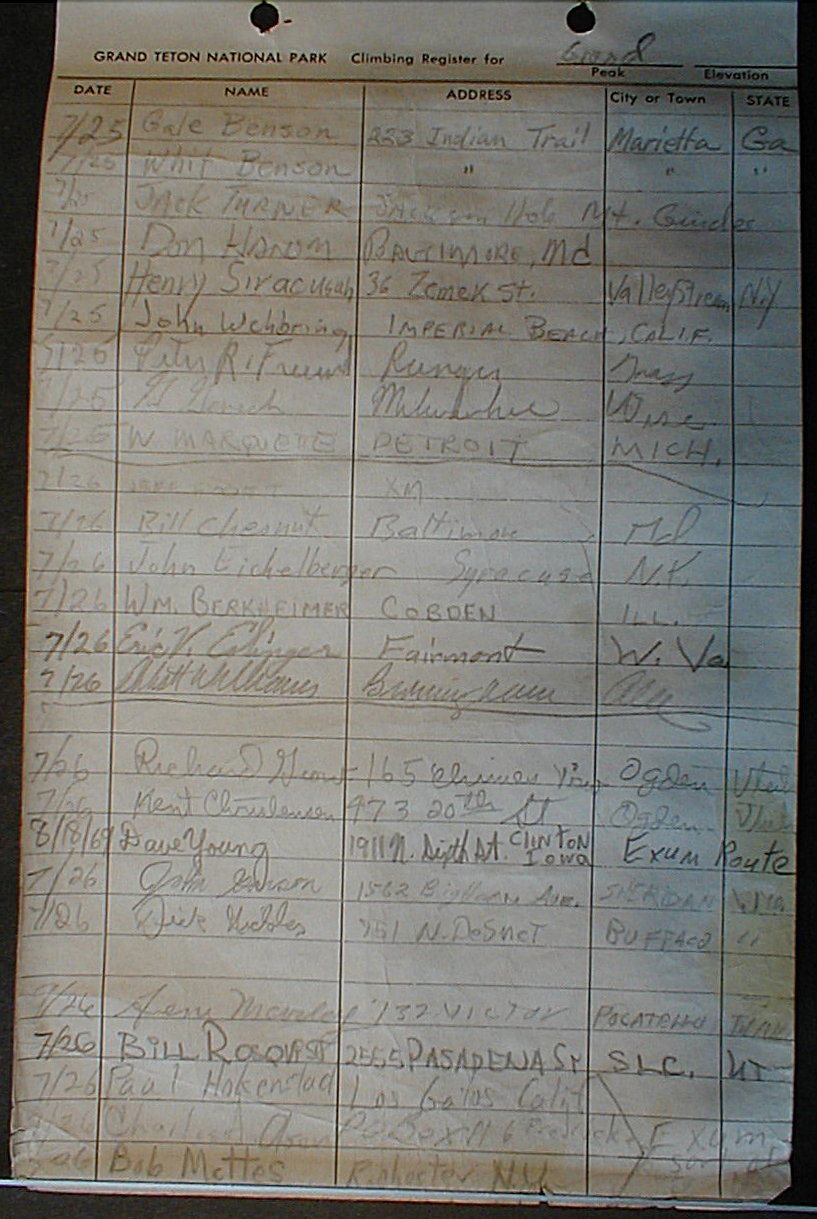 GRAND TETON NATIONAL PARK Climbing Register for Grand
Peak Elevation
DATE NAME ADDRESS City or Town STATE
7/25 Gale Benson 223 Indian Trail Marietta Ga
7/25 Whit Benson " " "
7/25 JACK TURNER Jackson Hole Mt. Guides
7/25 DON HANOM BALTIMORE, Md
7/25 Henry Siracusah 36 Zemek St. Valleystream N.Y
7/25 John Wehbring IMPERIAL BEACH, CALIF.
7/25 Peter R. Freund
7/25 Milwaukee Wisc.
7/25 W. MARQUETTE DETROIT MICH.
7/26
7/26 Bill Chesnut Baltimore Md
7/26 John Eichelberger Syracuse N.Y.
7/26 WM. BERKHEIMER COBDEN ILL.
7/26 Eric V. Fairmont W. Va
7/26 Williams Birmingham Ala
7/26 Richard 165 Ogden Utah
7/26 Kent Christensen 973 20th St Ogden Utah
8/18/69 Dave Young 1911 N. Sixth St. CLINTON Iowa EXUM Route
7/26 John 1562 Bighorn Ave. SHERIDAN
7/26 Dick 751 N. DeSmet BUFFALO "
7/26 132 VICTOR POCATELLO
7/26 BILL ROSQVIST 2555 PASADENA St SLC. UT
7/26 Paul Hokenstad Los Gatos Calif
7/26 P.O. Box Exum
7/26 Bob Mettes Rochester N.Y.